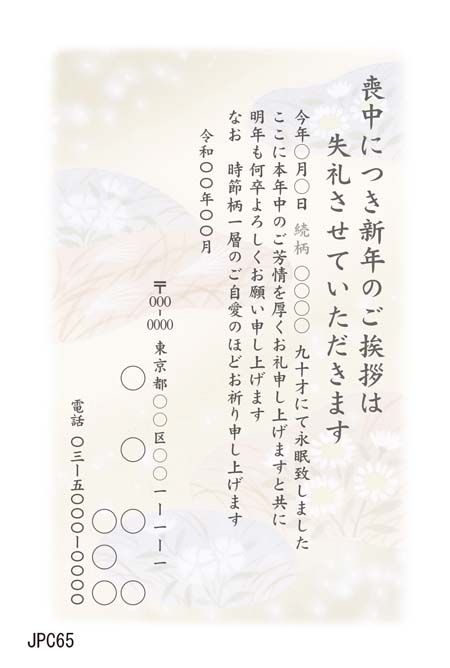 喪中につき新年のご挨拶は
失礼させていただきます
今年〇月〇日 続柄 〇〇〇〇 九十才にて永眠致しました
ここに本年中のご芳情を厚くお礼申し上げますと共に
明年も何卒よろしくお願い申し上げます
なお 時節柄一層のご自愛のほどお祈り申し上げます
令和〇〇年〇〇月
〒000-0000 東京都〇〇区〇〇一ー一ー一
〇 〇 〇〇
〇〇〇
電話 〇三ー五〇〇〇ー〇〇〇〇
JPC65